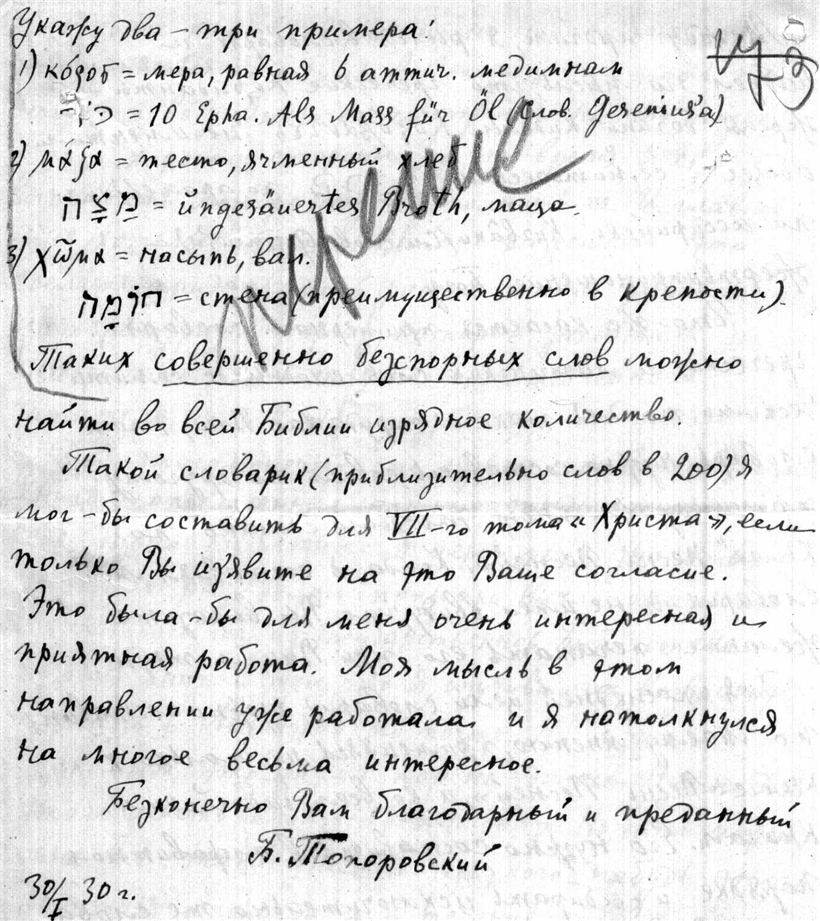 Укажу два – три примера:
1) κόρος = мера, равная 6 аттич. медимнам
= 10 Epha. Als Mass für Öl (слов. Gesenius'a)
2) μᾶζα = тесто, ячменный хлеб
מַצָּה = ungesäuertes Broth, маца.
3) χῶμα = насыпь, вал.
חוֹמָה = стена (преимущественно в крепости).
Таких совершенно безспорных слов можно
найти во всей Библии изрядное количество.
Такой словарик (приблизительно слов в 200) я
мог-бы составить для VII-го тома « Христа », если
только Вы из'явите на это Ваше согласие.
Это была-бы для меня очень интересная и
приятная работа. Моя мысль в этом
направлении уже работала и я натолкнулся
на многое весьма интересное.
Безконечно Вам благодарный и преданный
Б. Топоровский
30/I 30 г.